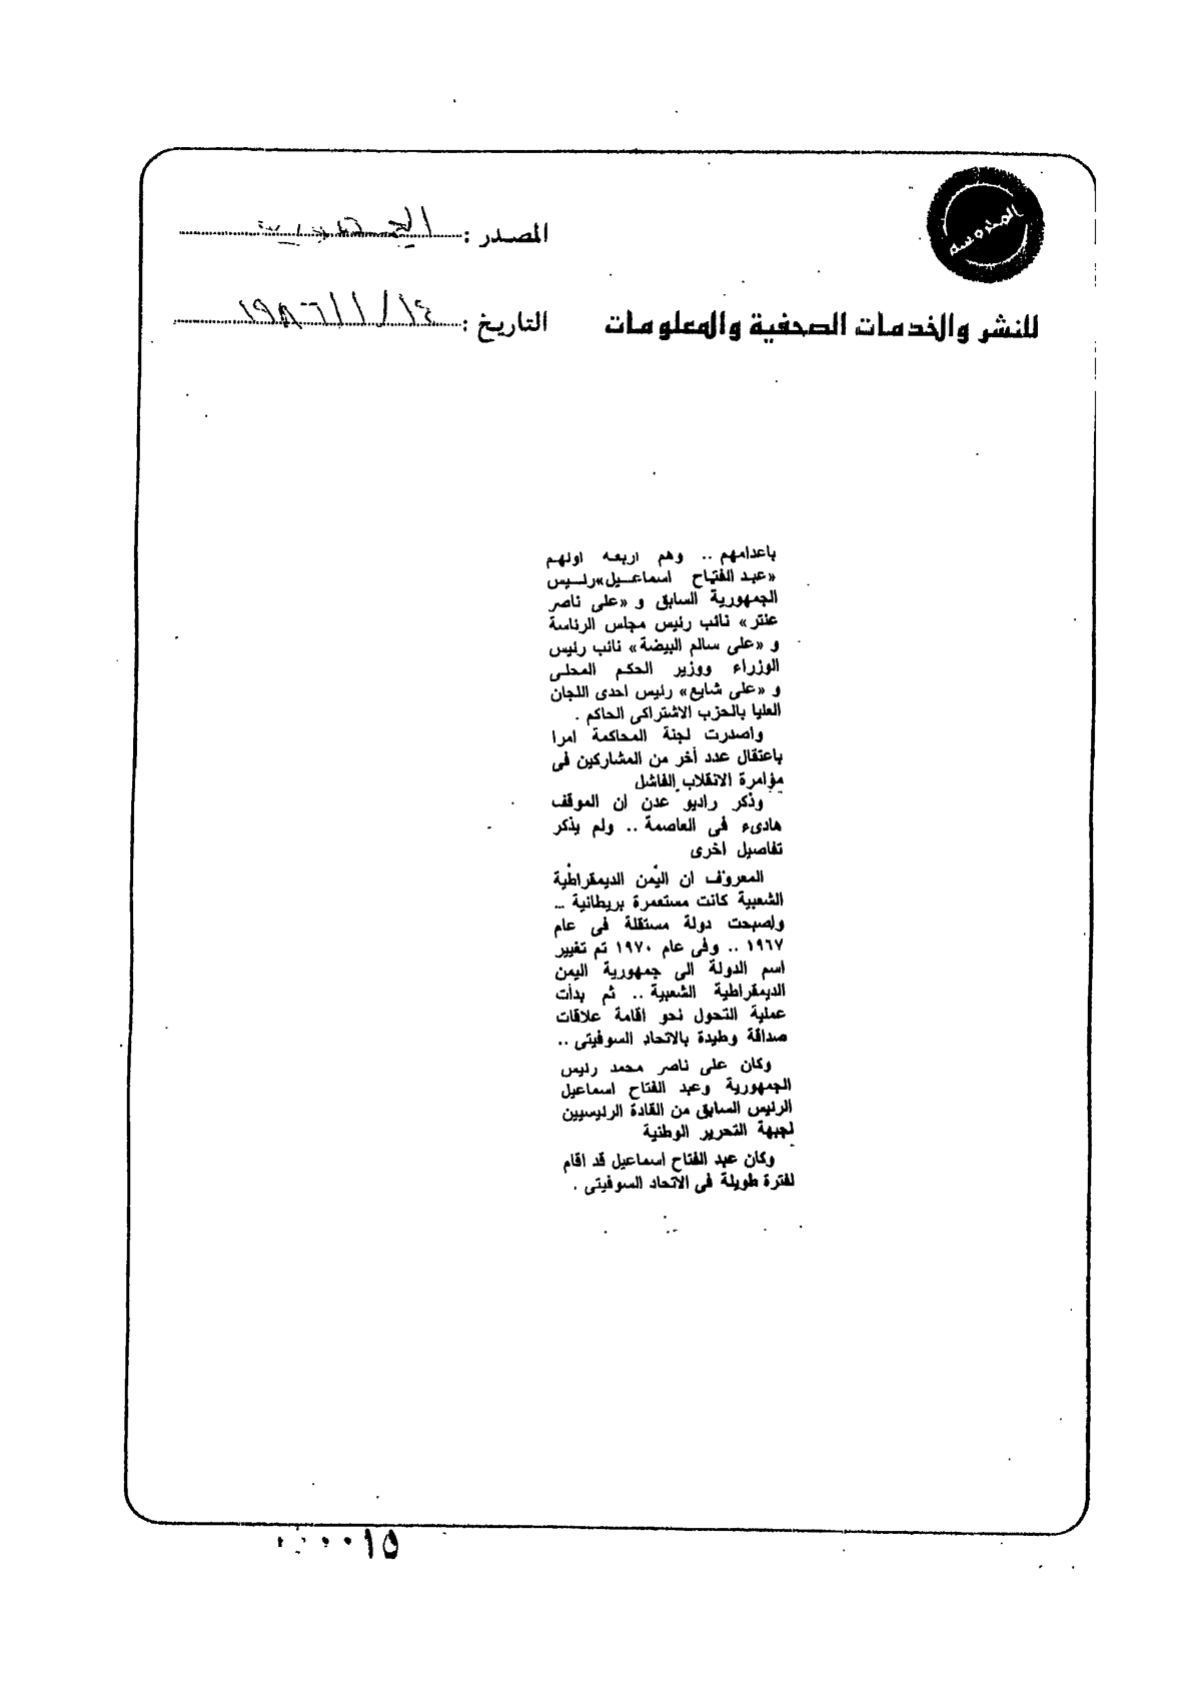 المحروسة
المصدر : الجمهورية
للنشر والخدمات الصحفية والمعلومات
التاريخ : ١٤/١/١٩٨٦
باعدامهم .. وهم اربعه اولهم
«عبد الفتاح اسماعيل» رئيس
الجمهورية السابق و «على ناصر
عنتر» نائب رئيس مجلس الرئاسة
و «على سالم البيضة» نائب رئيس
الوزراء ووزير الحكم المحلى
و «على شايع» رئيس احدى اللجان
العليا بالحزب الاشتراكى الحاكم .
واصدرت لجنة المحاكمة امرا
باعتقال عدد أخر من المشاركين فى
مؤامرة الانقلاب الفاشل
وذكر راديو عدن ان الموقف
هادىء فى العاصمة .. ولم يذكر
تفاصيل اخرى
المعروف ان اليمن الديمقراطية
الشعبية كانت مستعمرة بريطانية ..
واصبحت دولة مستقلة فى عام
١٩٦٧ .. وفى عام ١٩٧٠ تم تغيير
اسم الدولة الى جمهورية اليمن
الديمقراطية الشعبية .. ثم بدأت
عملية التحول نحو اقامة علاقات
صداقة وطيدة بالاتحاد السوفيتى ..
وكان على ناصر محمد رئيس
الجمهورية وعبد الفتاح اسماعيل
الرئيس السابق من القادة الرئيسيين
لجبهة التحرير الوطنية
وكان عبد الفتاح اسماعيل قد اقام
لفترة طويلة فى الاتحاد السوفيتى .
٠٠٠٠١٥